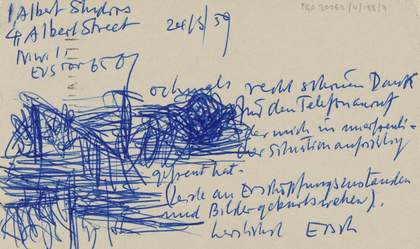 1 Albert Studios
4 Albert Street
N.W. 1
EUSton 6507
24/5/59
TGA 20063/4/198/9
ochmals recht schönen Dank
für den Telefonanruf
der mich in unerfreuli-
cher Situation aufrichtig
gefreut hat.
(leide an Erschöpfungszuständen
und Bildergeburtswehen).
herzlichst